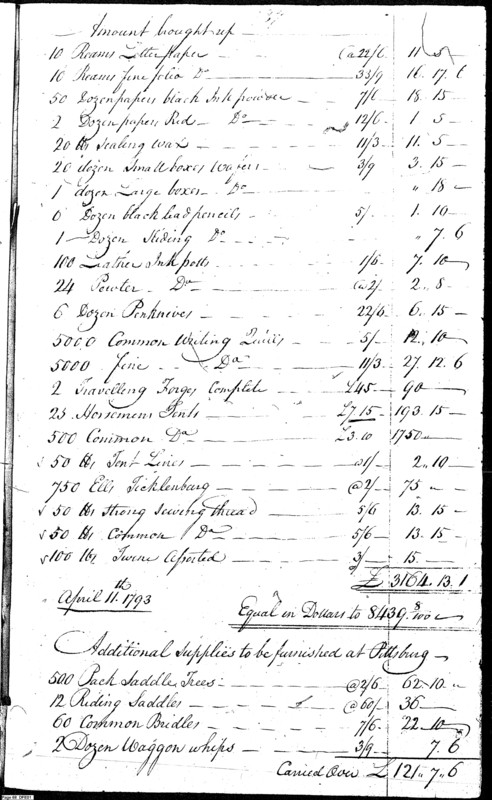 Amount brought up
10 Reams Letter paper @ 22/6 11 5
10 Reams fine folio Do 33/9 16. 17. 6
50 Dozen papers black Ink powder 7/6 18. 15
2 Dozen papers Red Do 12/6 1 5
20 lbs Sealing wax 11/3 11. 5
20 dozen Small boxes Wafers 3/9 3. 15
1 dozen Large boxes Do " 18
6 Dozen black lead pencils 5/. 1. 10
1 Dozen Sliding Do " 7. 6
100 Leather Ink potts 1/6 7. 10
24 Pewter Do @ 2/ 2 " 8
6 Dozen Penknives 22/6 6. 15
5000 Common Writing Quills 5/ 12. 10
5000 fine Do 11/3 27. 12. 6
2 Travelling Forges Complete £45 90
25 Horsemens Tents £7. 15 193. 15
500 Common Do £3. 10 1750
50 lbs Tent Lines @ 1/ 2 " 10
750 Ells Ticklenburg @ 2/ 75
50 lbs Strong Sewing thread 5/6 13. 15
50 lbs Common Do 5/6 13. 15
100 lbs Twine Assorted 3/ 15
£ 3164. 13. 1
April 11th. 1793
Equal in Dollars to 8439. 8/100
Additional Supplies to be furnished at Pittsburg
500 Pack Saddle Trees @ 2/6 62. 10
12 Riding Saddles @ 60/ 36
60 Common Bridles 7/6 22. 10
2 Dozen Waggon whips 3/9 7. 6
Carried Over £ 121 " 7 " 6